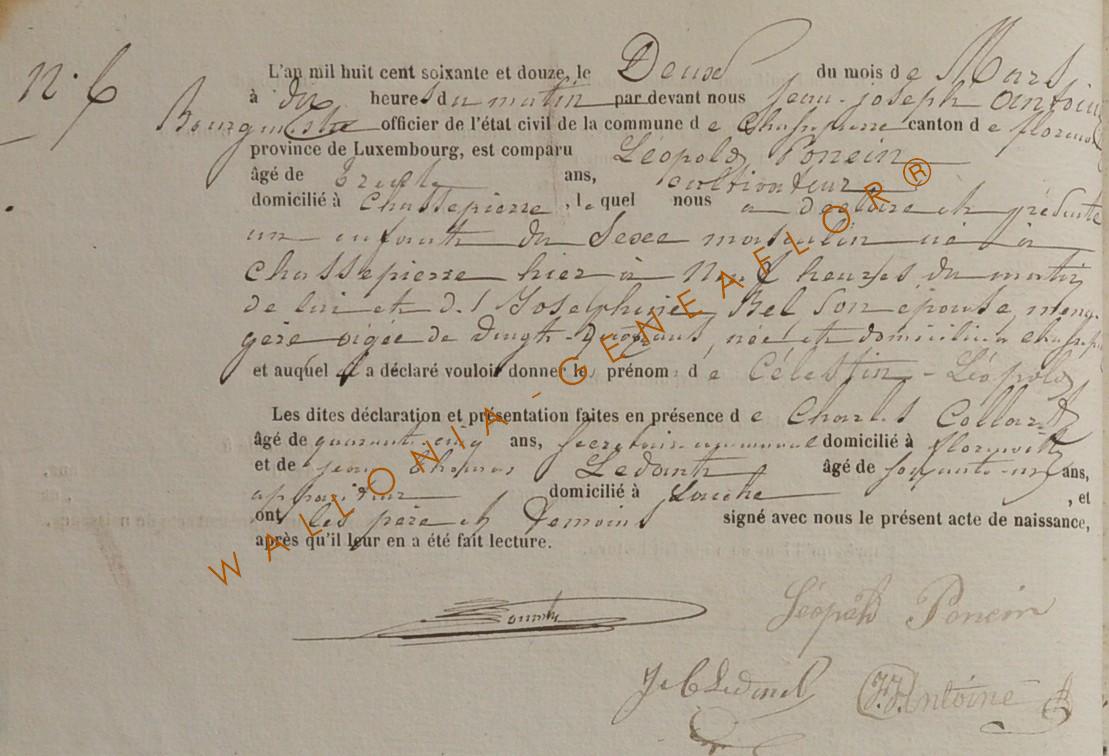 N° 6
L'an mil huit cent soixante et douze, le Deux du mois de Mars
à dix heures du matin par devant nous Jean-joseph Antoine
Bourgmestre officier de l'état civil de la commune de Chassepierre canton de
province de Luxembourg, est comparu Léopold Poncin
âgé de trente ans, cultivateur
domicilié à Chassepierre, lequel nous a déclaré et présenté
un enfant du Sexe masculin né à
Chassepierre hier à Neuf heures du matin
de lui et de Josephine Bel Son épouse, mena-
gère aigée de Vingt- ans, née et domicilié à
et auquel il a déclaré vouloir donner les prénom de Célestin - Léopold
Les dites déclaration et présentation faites en présence de Charles Collard
âgé de quarante-cinq ans, Secretaire communal domicilié à florenville
et de jean Ledant âgé de soixante-un ans,
domicilié à Laiche, et
ont les père et temoins signé avec nous le présent acte de naissance,
après qu'il leur en a été fait lecture.
Léopold Poncin
J J Antoine
WALLONIA-GENEAFLOR®